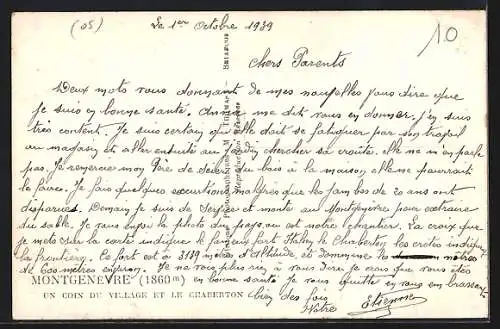 (05)
Le 1er Octobre 1939
10
chers Parents
Deux mots vous donnant de mes nouvelles pour dire que
je suis en bonne santé. me dit vous en donner. j'en suis
très content. Je suis certain qu'elle doit se fatiguer par son travail
au magasin et aller ensuite au chercher sa croute. elle ne m'en parle
pas. Je remercie mon Père de bois à la maison, elle ne pourrait
le faire. Je fais quelques excursions malgrés que les jambes de 20 ans ont
disparues. Demain je suis de et monte au Montgenèvre pour extraire
du sable. Je vous envoi la photo du pays, ou est notre chantier. La croix que
je mets sur la carte indique le fameux fort Italien le Chaberton les croles indique
la frontière. Ce fort est à 3139 mètres d'altitude, et domine les mètres
de 600 mètres environ. Je ne vois plus rien à vous dire je crois que vous êtes
MONTGENEVRE (1860m) en bonne santé Je vous quitte en vous embrassant
UN COIN DU VILLAGE ET LE CHABERTON bien des fois
Votre Etienne